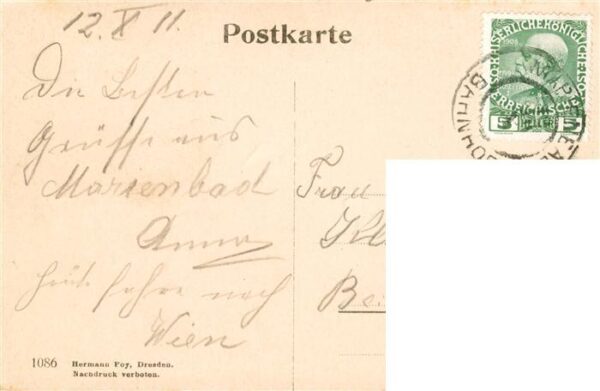 12. X 11.
Postkarte
Die besten
Grüsse aus
Marienbad
Anna
heute fahre nach
Wien
Frau
Kl
Be
1086 Hermann Poy, Dresden.
Nachdruck verboten.
KAISERLICHE KÖNIGLICHE
1908
ÖSTERREICHISCHE
5 5
BAHNHOF